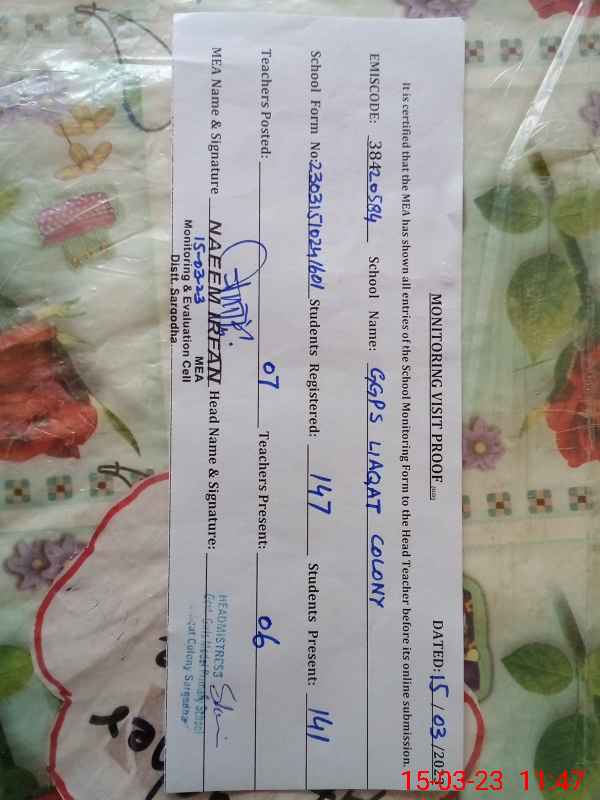 MONITORING VISIT PROOF DATED: 15/03/2023
It is certified that the MEA has shown all entries of the School Monitoring Form to the Head Teacher before its online submission.
EMISCODE: 38420594 School Name: GGPS LIAQAT COLONY
School Form No: 23031510241601 Students Registered: 147 Students Present: 141
Teachers Posted: 07 Teachers Present: 06
MEA Name & Signature NAEEM IRFAN Head Name & Signature:
15-03-23
MEA
Monitoring & Evaluation Cell
Distt. Sargodha
HEADMISTRESS
Govt. Girls Primary School
Colony Sargodha
15-03-23 11:47